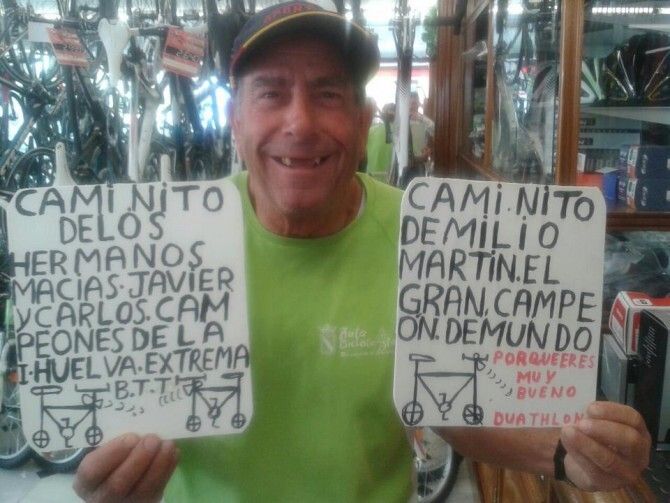 CAMINITO
DELOS
HERMANOS
MACIAS.JAVIER
y CARLOS.CAM
PEONES DE LA
I.HUELVA.EXTREMA
B.T.T.
CAMI.NITO
DEMILIO
MARTIN.EL
GRAN.CAMPE
ON.DEMUNDO
PORQUEERES
MUY
BUENO
DUATHLON